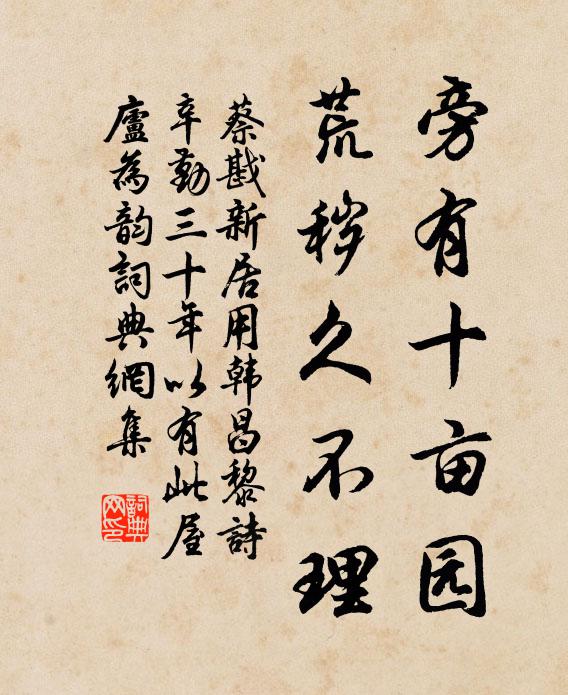 旁有十亩园
荒秽久不理
蔡戡新居用韩昌黎詩
辛勤三十年以有此屋
廬為韵詞典網集
詞典网印